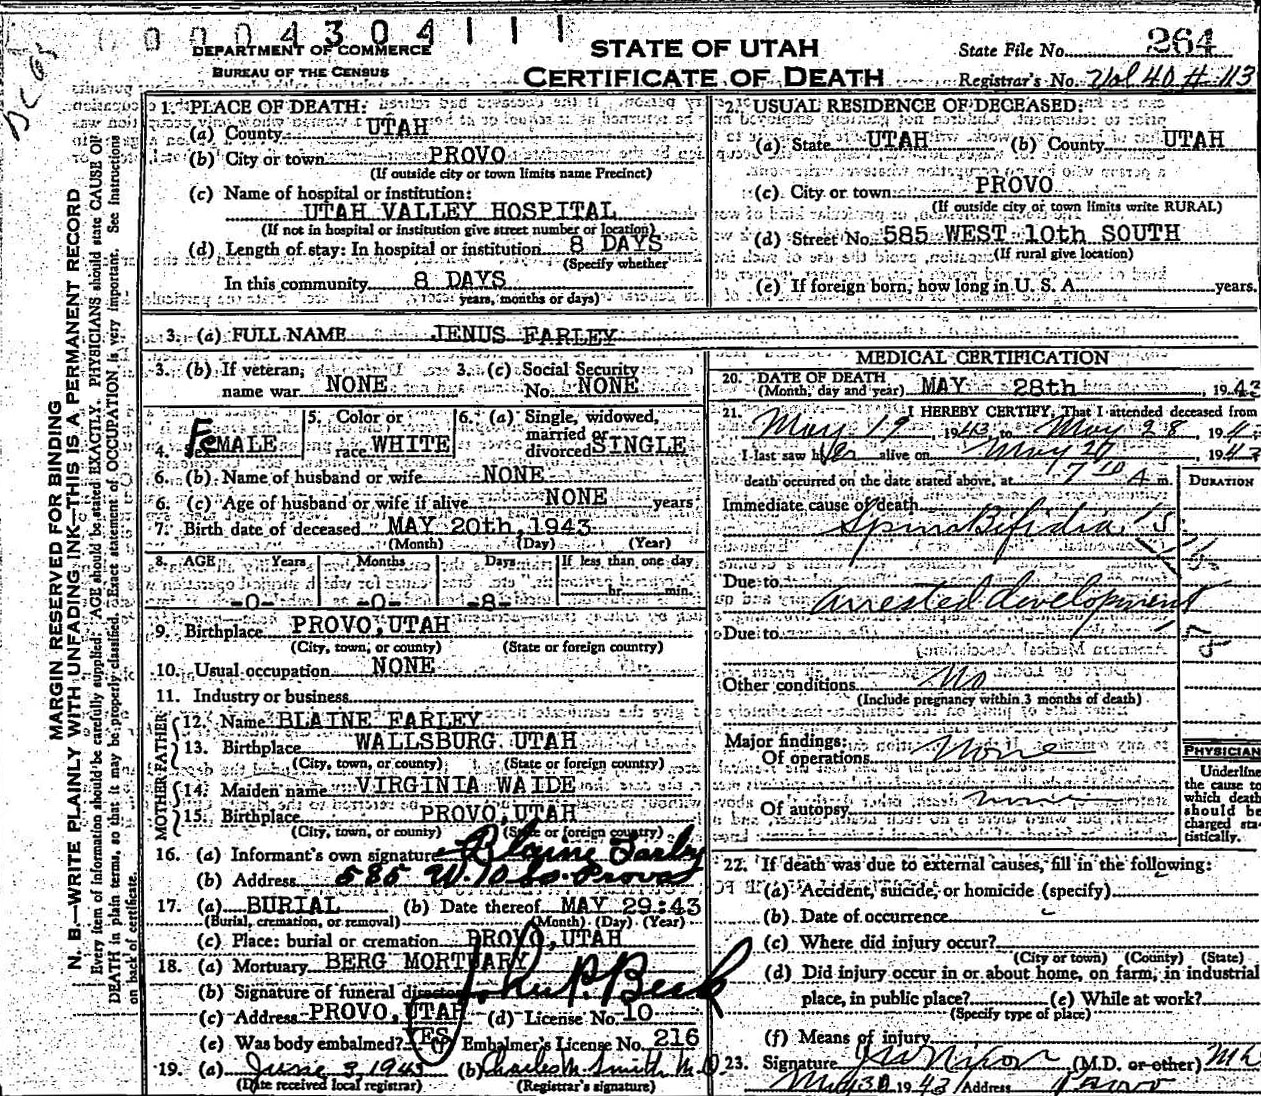 0004304111
DEPARTMENT OF COMMERCE
BUREAU OF THE CENSUS
STATE OF UTAH
CERTIFICATE OF DEATH
State File No. 264
Registrar's No. Vol 40 # 113
MARGIN RESERVED FOR BINDING
N. B.—WRITE PLAINLY WITH UNFADING INK—THIS IS A PERMANENT RECORD
Every item of information should be carefully supplied. AGE should be stated EXACTLY. PHYSICIANS should state CAUSE OF
DEATH in plain terms, so that it may be properly classified. Exact statement of OCCUPATION is very important. See Instructions
on back of certificate.
1. PLACE OF DEATH:
(a) County UTAH
(b) City or town PROVO
(If outside city or town limits name Precinct)
(c) Name of hospital or institution:
UTAH VALLEY HOSPITAL
(If not in hospital or institution give street number or location)
(d) Length of stay: In hospital or institution 8 DAYS
(Specify whether
In this community 8 DAYS
years, months or days)
2. USUAL RESIDENCE OF DECEASED:
(a) State UTAH (b) County UTAH
(c) City or town PROVO
(If outside city or town limits write RURAL)
(d) Street No. 585 WEST 10th SOUTH
(If rural give location)
(e) If foreign born, how long in U. S. A. years.
3. (a) FULL NAME JENUS FARLEY
3. (b) If veteran, 3. (c) Social Security
name war NONE No. NONE
4. FeMALE
5. Color or
race WHITE
6. (a) Single, widowed,
married or
divorced SINGLE
6. (b) Name of husband or wife NONE
6. (c) Age of husband or wife if alive NONE years
7. Birth date of deceased MAY 20th, 1943
(Month) (Day) (Year)
8. AGE Years Months Days If less than one day
-0- -0- -8- hr. min.
9. Birthplace PROVO, UTAH
(City, town, or county) (State or foreign country)
10. Usual occupation NONE
11. Industry or business
FATHER
12. Name BLAINE FARLEY
13. Birthplace WALLSBURG UTAH
(City, town, or county) (State or foreign country)
MOTHER
14. Maiden name VIRGINIA WAIDE
15. Birthplace PROVO, UTAH
(City, town, or county) (State or foreign country)
16. (a) Informant's own signature Blaine Farley
(b) Address 585 W. 10 So. Provo
17. (a) BURIAL (b) Date thereof MAY 29:43
(Burial, cremation, or removal) (Month) (Day) (Year)
(c) Place: burial or cremation PROVO, UTAH
18. (a) Mortuary BERG MORTUARY
(b) Signature of funeral director John P. Beck
(c) Address PROVO, UTAH (d) License No. 10
(e) Was body embalmed? YES (f) Embalmer's License No. 216
19. (a) June 3, 1943 (b) Charles M. Smith M.D.
(Date received local registrar) (Registrar's signature)
MEDICAL CERTIFICATION
20. DATE OF DEATH
(Month, day and year) MAY 28th, 1943
21. I HEREBY CERTIFY, That I attended deceased from
May 19, 1943 to May 28, 194
I last saw her alive on May 27, 1943
death occurred on the date stated above, at 7 10 A m.
DURATION
Immediate cause of death
Spina Bifidia
Due to arrested development
Due to
Other conditions No
(Include pregnancy within 3 months of death)
Major findings:
Of operations None
Of autopsy none
PHYSICIAN
Underline
the cause to
which death
should be
charged sta-
tistically.
22. If death was due to external causes, fill in the following:
(a) Accident, suicide, or homicide (specify)
(b) Date of occurrence
(c) Where did injury occur?
(City or town) (County) (State)
(d) Did injury occur in or about home, on farm, in industrial
place, in public place? (e) While at work?
(Specify type of place)
(f) Means of injury
23. Signature Nixon (M.D. or other)
May 30 1943 Address Provo